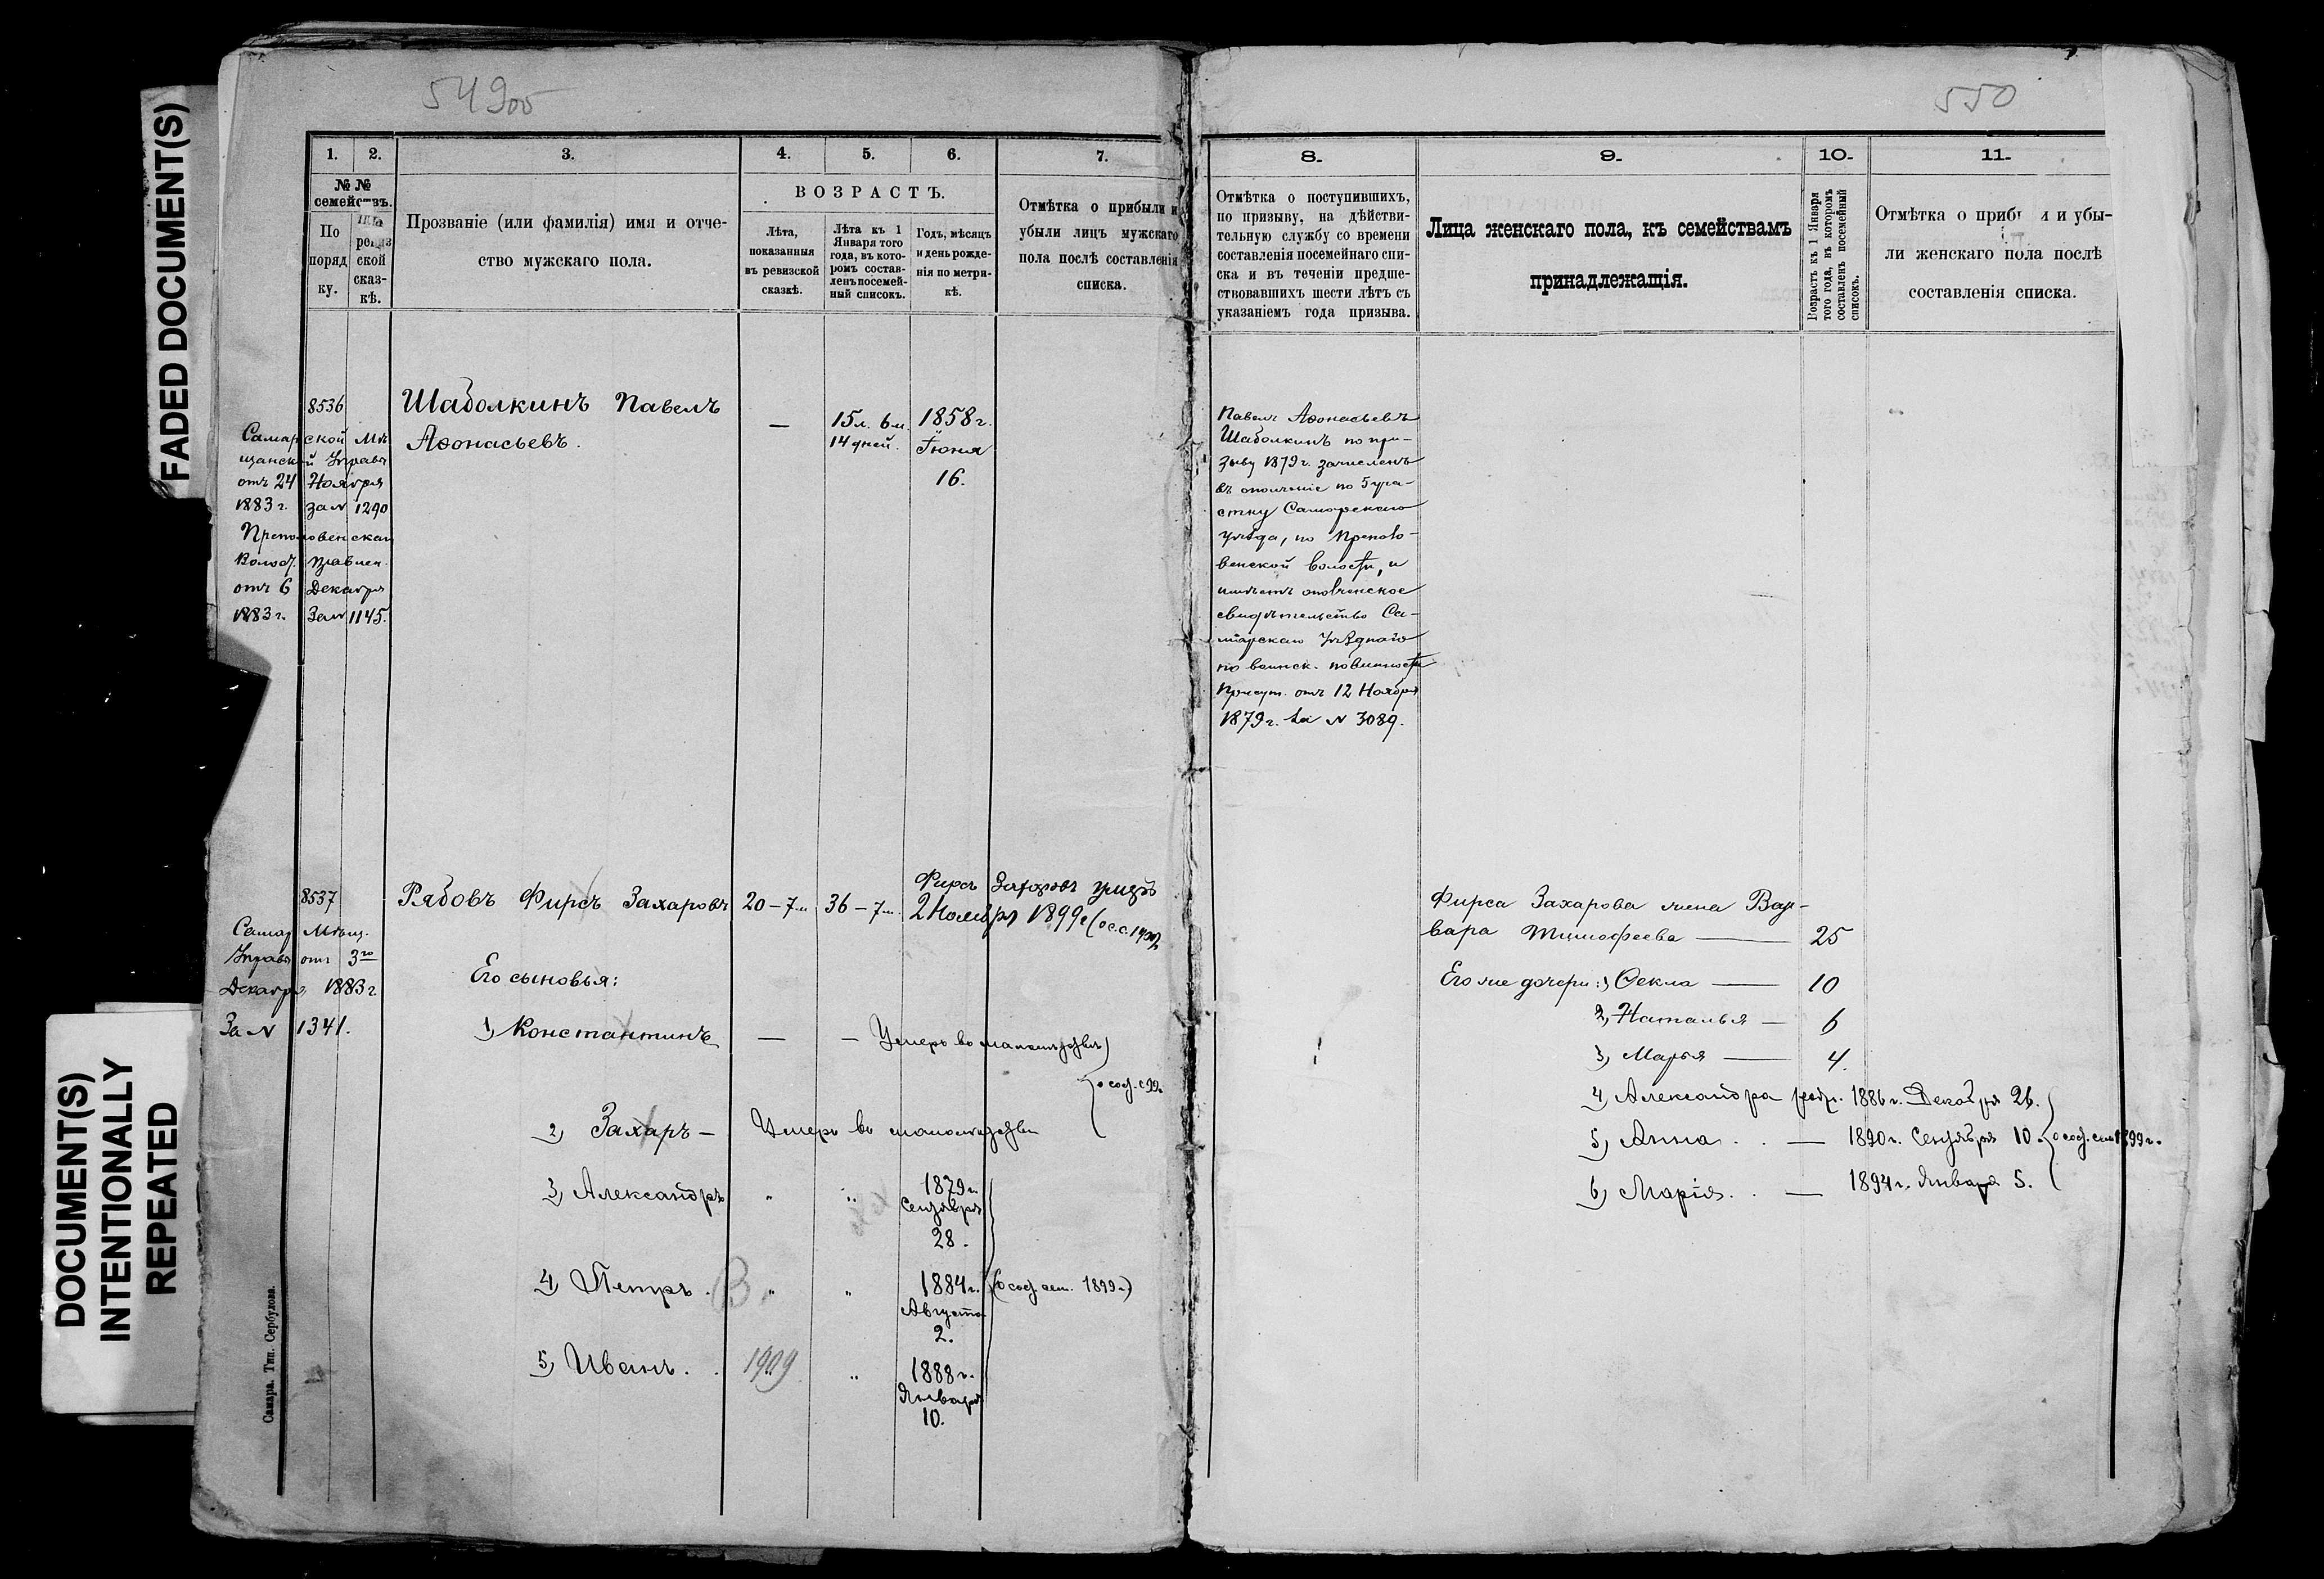 FADED DOCUMENT(S)
DOCUMENT(S)
INTENTIONALLY
REPEATED
549об
1. 2. 3. 4. 5. 6. 7.
№ №
семействъ.
По
поряд
ку.
ревиз
ской
сказ-
кѣ.
Прозваніе (или фамилія) имя и отче-
ство мужскаго пола.
ВОЗРАСТЪ.
Лѣта,
показанныя
въ ревизской
сказкѣ.
Лѣта къ 1
Января того
года, въ кото-
ромъ состав-
ленъ посемей-
ный списокъ.
Годъ, мѣсяцъ
и день рожде-
нія по метри-
кѣ.
Отмѣтка о прибыли и
убыли лицъ мужскаго
пола послѣ составленія
списка.
8536
Самарской Мѣ
щанской Управы
отъ 24 Ноября
1883 г. за № 1290
Преполовенскаго
Волост. Правлен.
отъ 6 Декабря
1883 г. За № 1145.
Шаболкинъ Павелъ
Аѳонасьевъ.
—
15 л. 6 м.
14 дней.
1858 г.
Іюня
16.
8537
Самар Мѣщ.
Управы отъ 3го
Декабря 1883 г.
За № 1341.
Рябовъ Фирсъ Захаровъ 20 – 7 м. 36 – 7 м.
Фирсъ Захаровъ умеръ
2 Ноября 1899 г.
Его сыновья:
1) Константинъ — — Умеръ въ малолѣтствѣ
2) Захаръ — Умеръ въ малолѣтствѣ
3) Александръ " " 1879 г.
Сентября
28.
4) Петръ. В. " " 1884 г. (о сост. сем. 1899 г.)
Августа
2.
5) Иванъ. . 1909 " 1888 г.
Января
10.
Самара. Тип. Сербулова.
550
8. 9. 10. 11.
Отмѣтка о поступившихъ,
по призыву, на дѣйстви-
тельную службу со времени
составленія посемейнаго спи-
ска и въ теченіи предше-
ствовавшихъ шести лѣтъ съ
указаніемъ года призыва.
Лица женскаго пола, къ семействамъ
принадлежащія.
Возрастъ къ 1 Января
того года, въ которомъ
составленъ посемейный
списокъ.
Отмѣтка о приб и и убы-
ли женскаго пола послѣ
составленія списка.
Павелъ Аѳонасьевъ
Шаболкинъ по при-
зыву 1879 г. зачисленъ
въ ополченіе по 5 уча-
стку Самарскаго
уѣзда, по Преполо-
венской волости, и
имѣетъ ополченское
свидѣтельство Са-
марскаго Уѣзднаго
по воинск. повинности
Присут. отъ 12 Ноября
1879 г. за № 3089.
Фирса Захарова жена Вар-
вара Тимофеева — 25
Его же дочери: 1) Ѳекла — 10
2) Наталья — 6
3) Марья — 4.
4) Александра родил. 1886 г. Декабря 26.
5) Анна . . — 1890 г. Сентября 10. о сост. сем 1899 г.
6) Марія . . — 1894 г. Января 5.